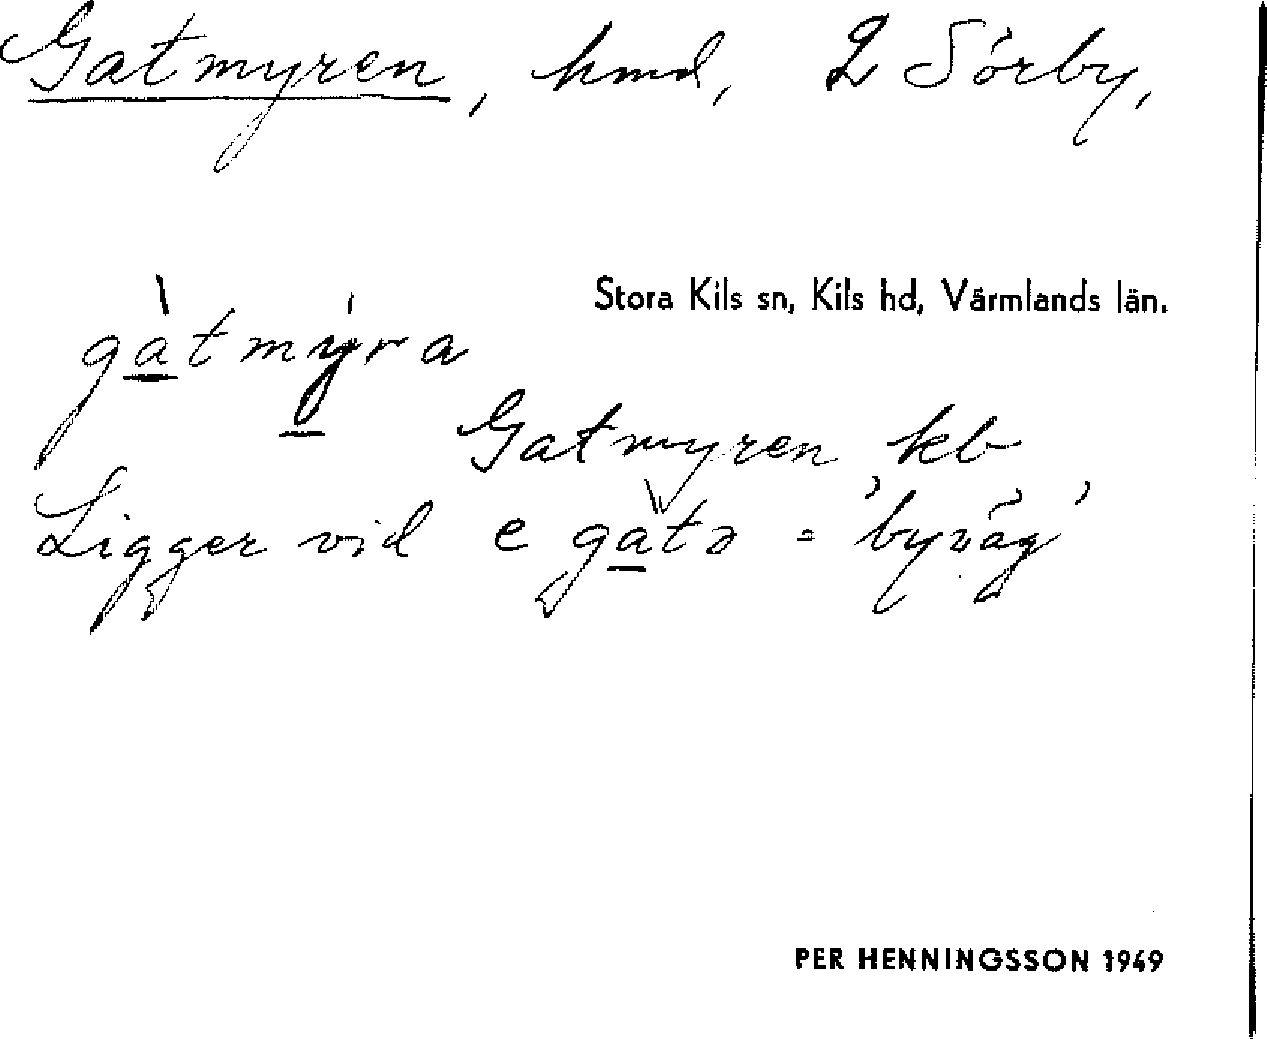 Gatmyren, hmd, 2 Sörby,
Stora Kils sn, Kils hd, Värmlands län.
gàtmýra
Gatmyren kb
Ligger vid e gatə = 'byväg'
PER HENNINGSSON 1949